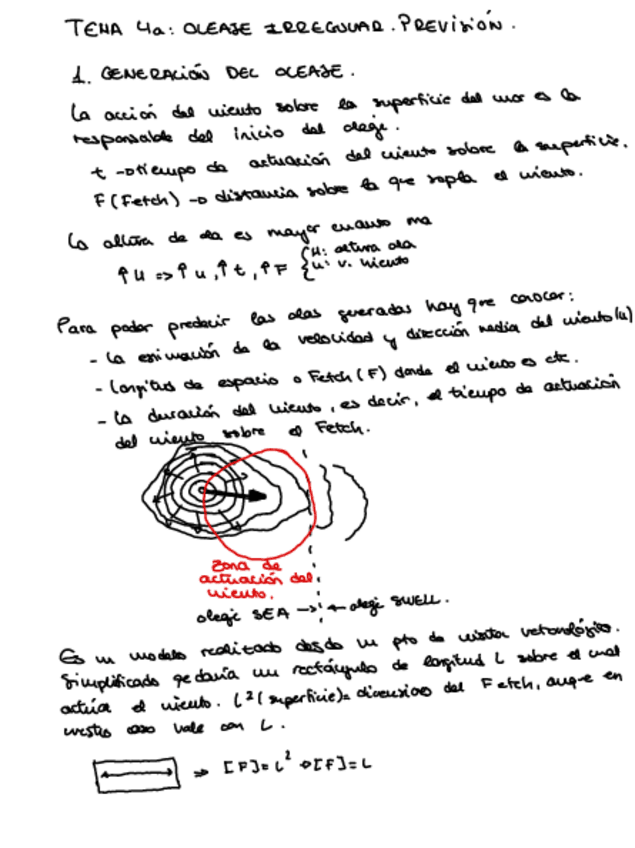 TEMA 4a: OLEAJE IRREGULAR. PREVISIÓN.
1. GENERACIÓN DEL OLEAJE.
La acción del viento sobre la superficie del mar es la
responsable del inicio del oleaje.
t → tiempo de actuación del viento sobre la superficie.
F (Fetch) → distancia sobre la que sopla el viento.
La altura de ola es mayor cuanto
↑ H => ↑ u, ↑ t, ↑ F { H: altura ola
u: v. viento
Para poder predecir las olas generadas hay que conocer:
- La estimación de la velocidad y dirección media del viento (u)
- Longitud de espacio o Fetch (F) donde el viento es cte.
- La duración del viento, es decir, el tiempo de actuación
del viento sobre el Fetch.
Zona de
actuación del
viento.
oleaje SEA → ← oleaje SWELL.
Es un modelo realizado desde un pto de vista
Simplificado quedaría un rectángulo de longitud L sobre el cual
actúa el viento. L² (superficie) = dimensiones del Fetch, aunque en
caso vale con L.
⇒ [F] = L² → [F] = L